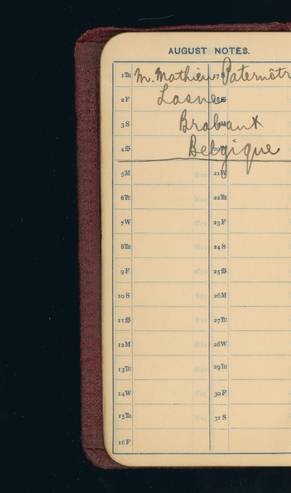 AUGUST NOTES.
1Th M. Mathieu Paternôtr
2F Lasne
3S Brabant
4S Belgique
5M 21W
6Tu 22Th
7W 23F
8Th 24S
9F 25S
10S 26M
11S 27Tu
12M 28W
13Tu 29Th
14W 30F
15Th 31S
16F